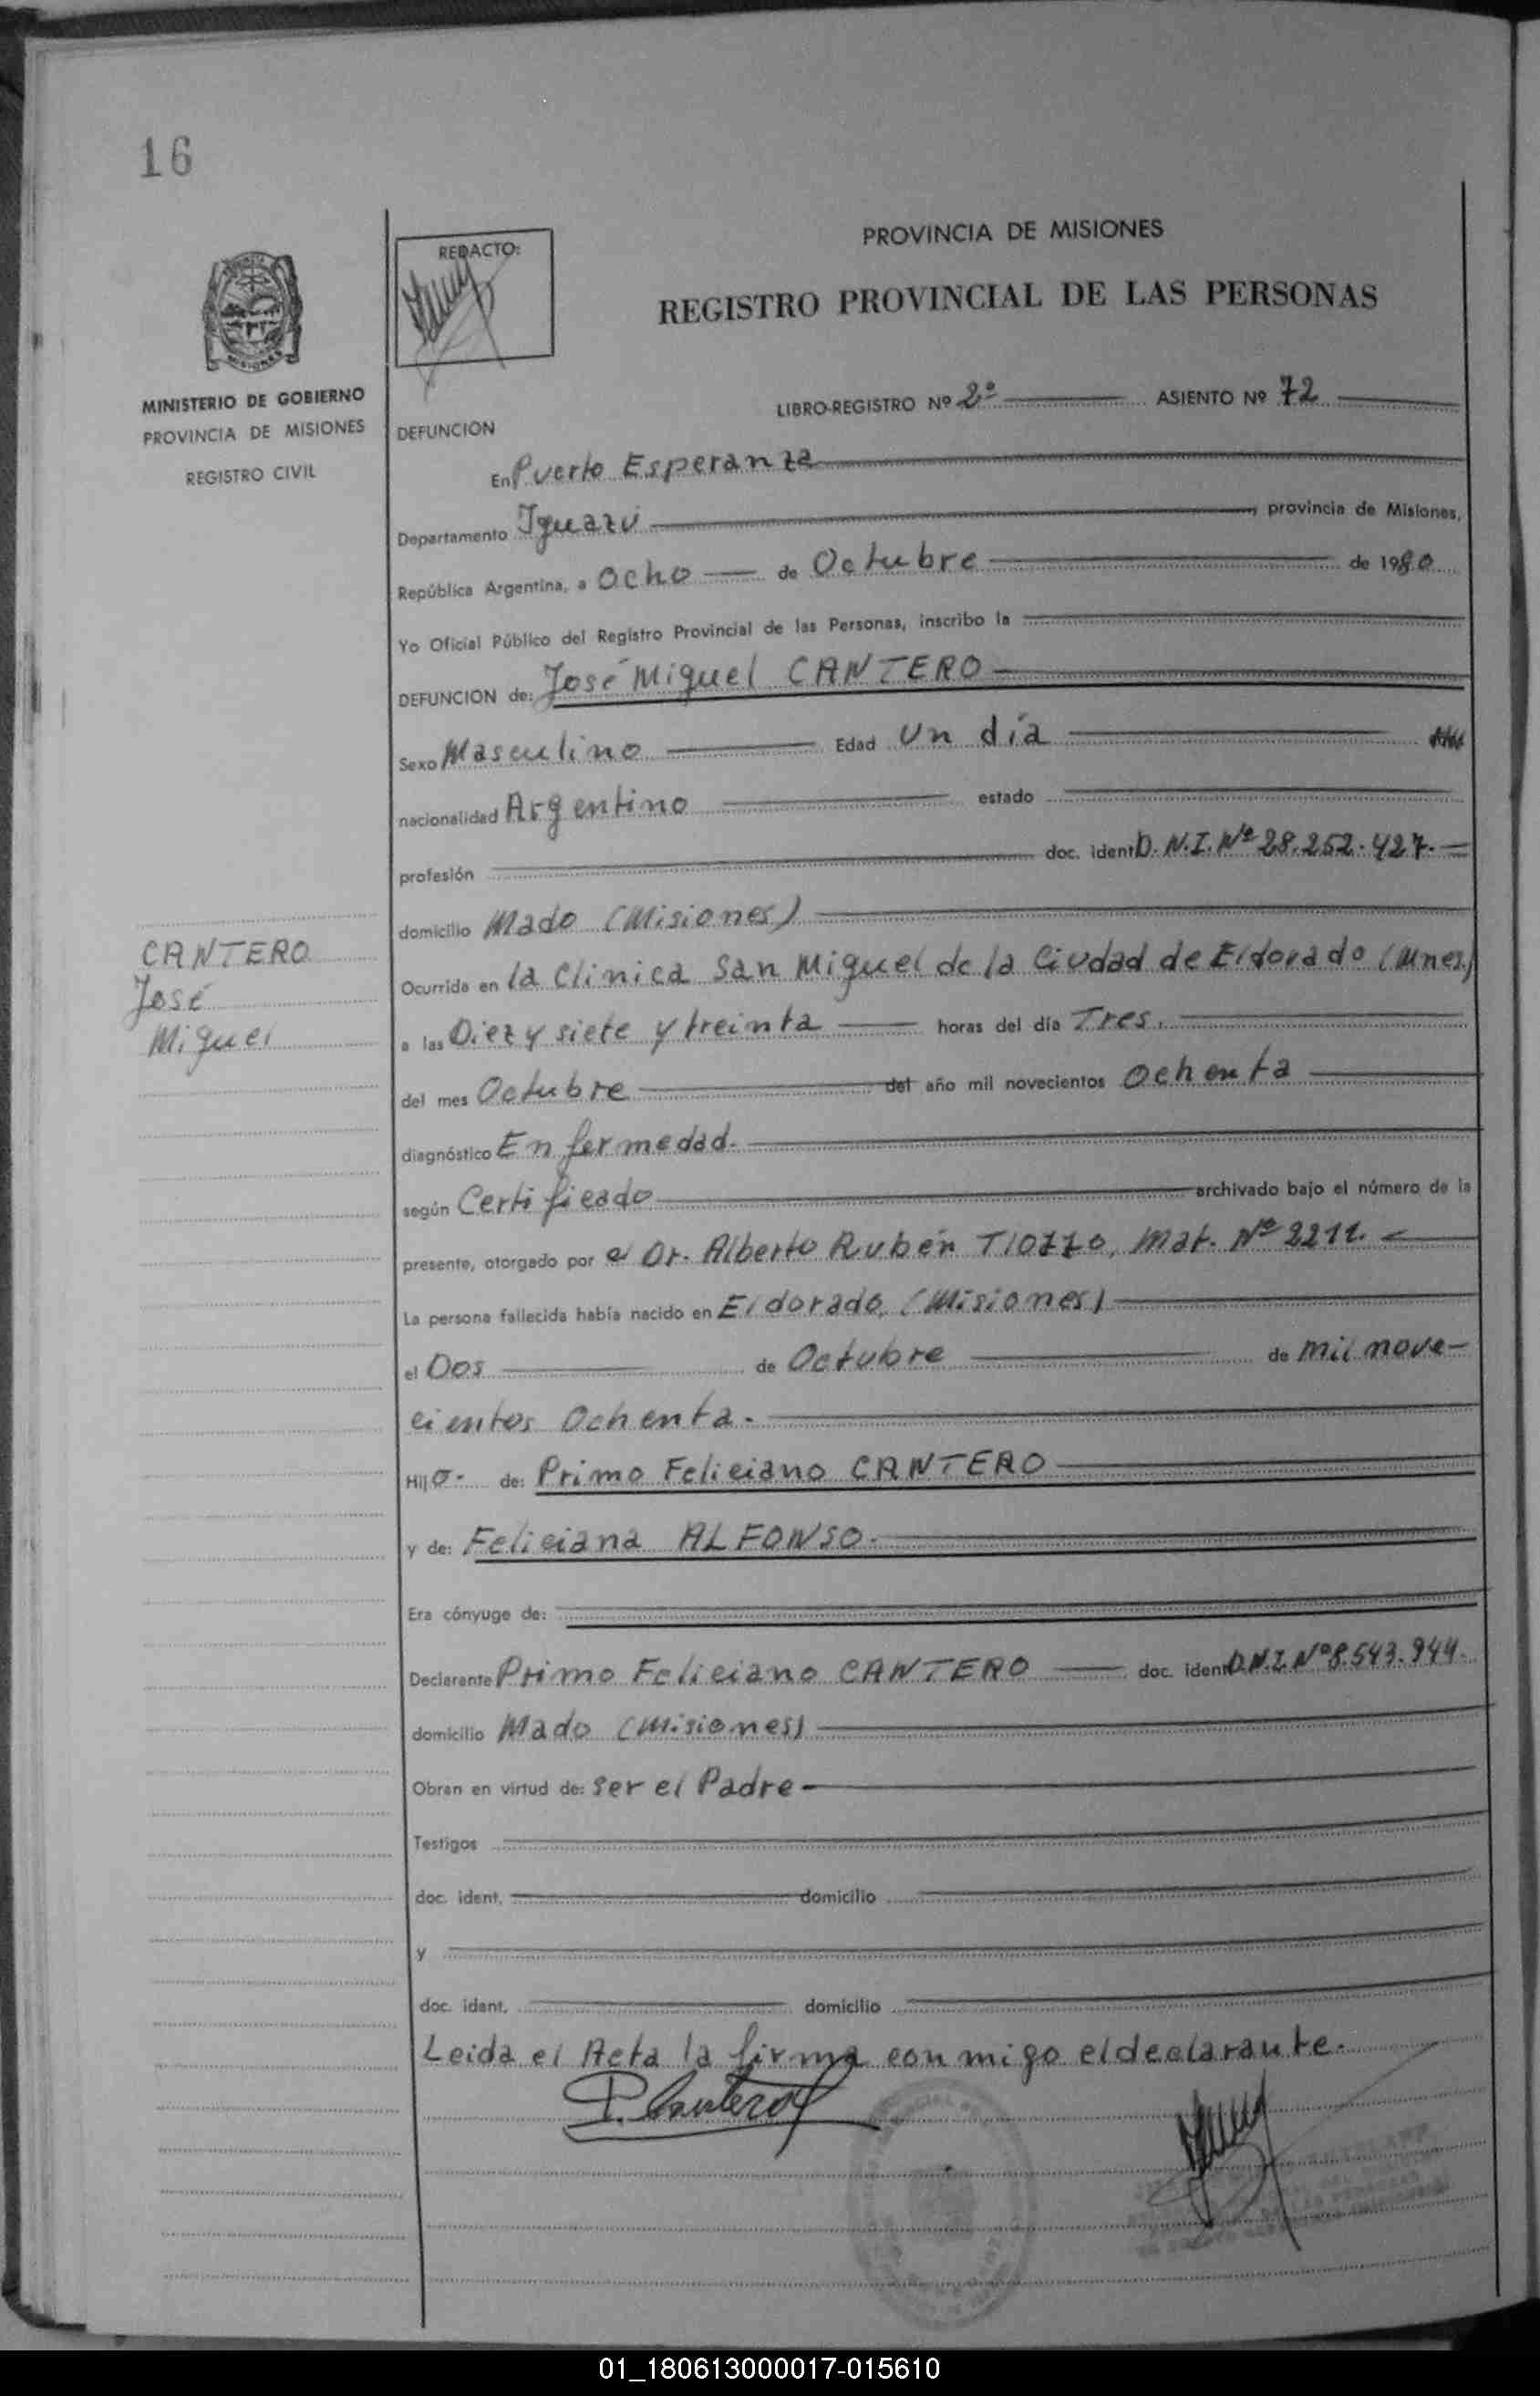 16
PROVINCIA DE MISIONES
REDACTO:
REGISTRO PROVINCIAL DE LAS PERSONAS
MINISTERIO DE GOBIERNO
PROVINCIA DE MISIONES
REGISTRO CIVIL
LIBRO-REGISTRO Nº 2º ASIENTO Nº 72
DEFUNCION
En Puerto Esperanza
Departamento Iguazú, provincia de Misiones,
República Argentina, a Ocho de Octubre de 1980
Yo Oficial Público del Registro Provincial de las Personas, inscribo la
DEFUNCION de: José Miguel CANTERO
Sexo Masculino Edad Un día
nacionalidad Argentino estado
profesión doc. ident D.N.I. Nº 28.252.427.
domicilio Mado (Misiones)
CANTERO
José
Miguel
Ocurrida en la Clinica San Miguel de la Ciudad de Eldorado (Mnes.)
a las Diez y siete y treinta horas del día Tres.
del mes Octubre del año mil novecientos Ochenta
diagnóstico Enfermedad.
según Certificado archivado bajo el número de la
presente, otorgado por el Dr. Alberto Rubén TIOZZO, Mat. Nº 2211.
La persona fallecida había nacido en Eldorado, (Misiones)
el Dos de Octubre de mil nove-
cientos Ochenta.
Hijo. de: Primo Feliciano CANTERO
y de: Feliciana ALFONSO.
Era cónyuge de:
Declarante Primo Feliciano CANTERO doc. ident D.N.I. Nº 8.543.944.
domicilio Mado (Misiones)
Obran en virtud de: Ser el Padre
Testigos
doc. ident. domicilio
y
doc. ident. domicilio
Leida el Acta la firma con migo el declarante.
P. Cantero
01_180613000017-015610